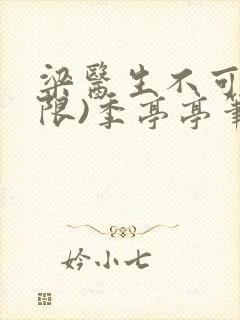 梁醫生不可
限)季亭亭筆
妗小七